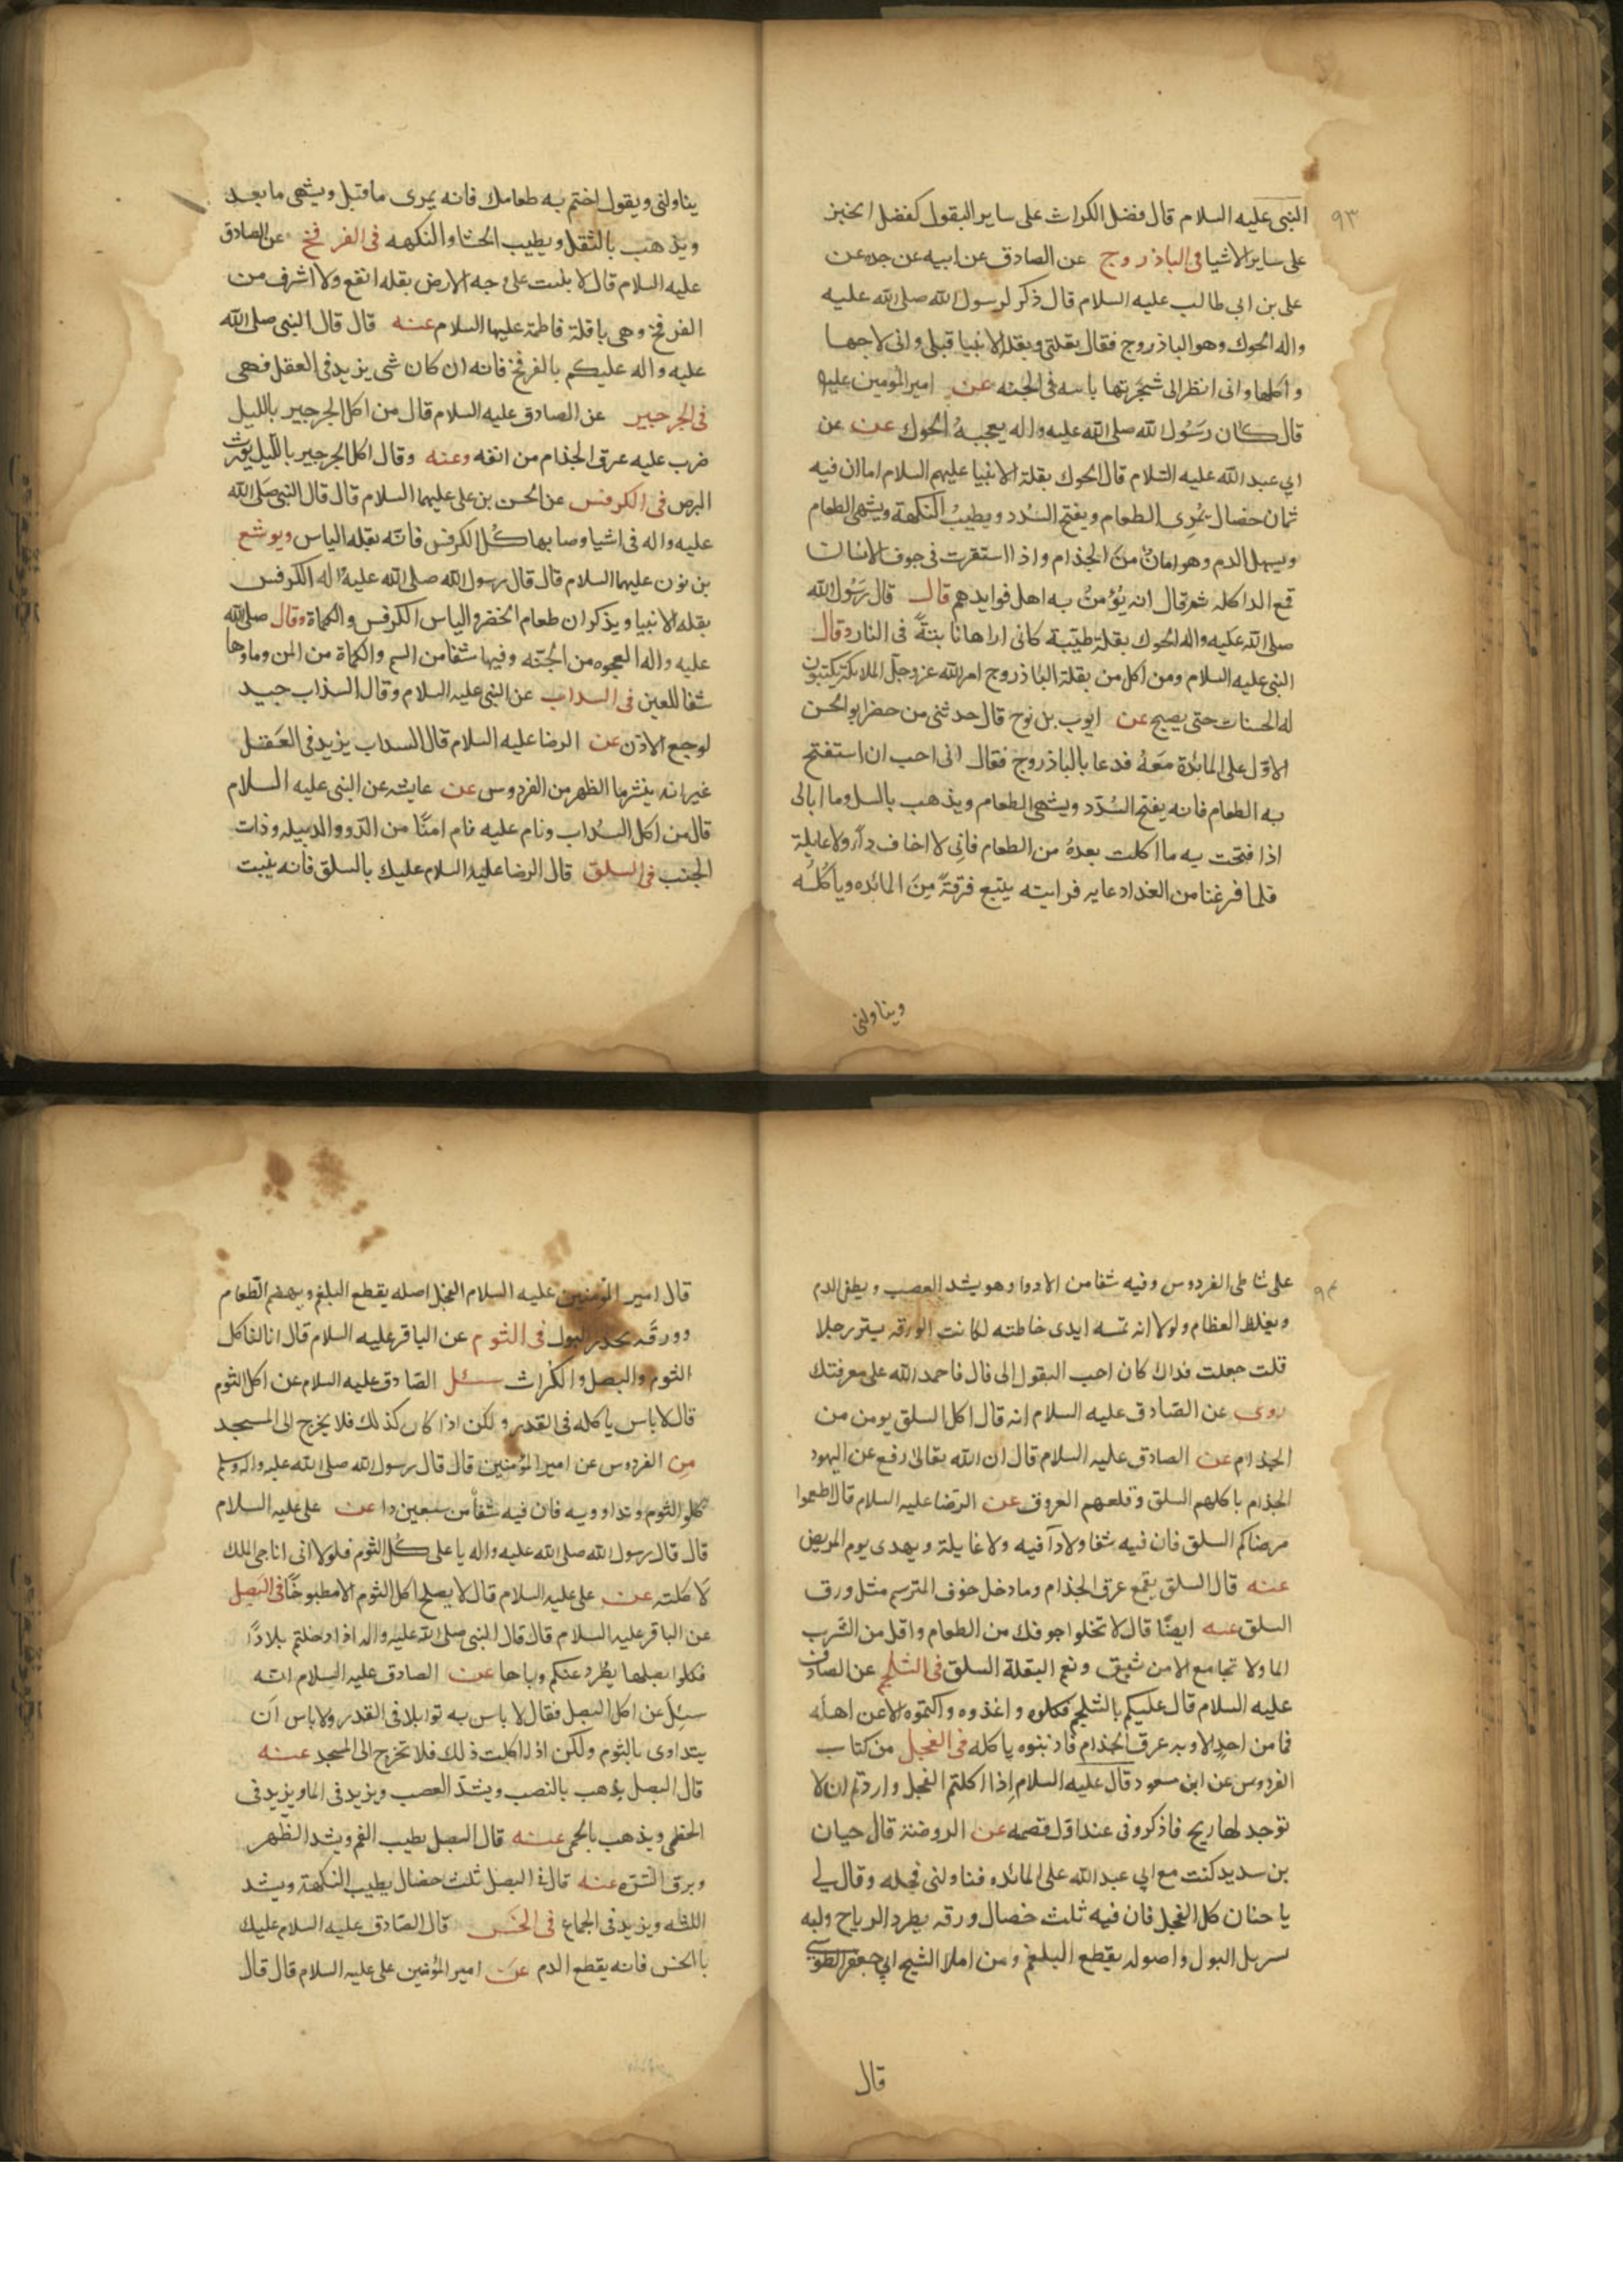 ٩٣
النبى عليه السلام قال فضل الكراث على ساير البقول كفضل الخبز
على ساير الاشيا فى الباذروج عن الصادق عن ابيه عن جده عن
على بن ابي طالب عليه السلام قال ذكر لرسول الله صلى الله عليه
واله الحوك وهو الباذروج فقال بقلتى وبقلة الانبيا قبلى وانى لاحبها
واكلها وانى انظر الى شجرتها باسه فى الجنه عن امير المومين عليه
قال كان رسول الله صلى الله عليه واله يعجبه الحوك عن عن
ابي عبد الله عليه السلام قال الحوك بقلة الانبيا عليهم السلام اما ان فيه
ثمان خصال يمرى الطعام ويفتح السدد ويطيب النكهة ويشهى الطعام
ويسهل الدم وهو امان من الجذام واذا استقرت فى جوف الانسان
قمع الدا كله ثم قال انه يؤمن به اهل فوايدهم قال قال رسول الله
صلى الله عليه واله الحوك بقلة طيبة كانى اراها نابتة فى النار وقال
النبى عليه السلام ومن اكل من بقلة الباذروج امر الله عز وجل الملائكة يكتبون
له الحسنات حتى يصبح عن ايوب بن نوح قال حدثنى من حضر ابو الحسن
الاول على المائدة معه فدعا بالباذروج فقال انى احب ان استفتح
به الطعام فانه يفتح السدد ويشهى الطعام ويذهب بالسل وما ابالى
اذا فتحت به ما اكلت بعده من الطعام فانى لا اخاف داء ولا غايلة
فلما فرغنا من الغدا دعا به فرايته يتبع فرقة من المائده وياكله
ويناولنى
يناولنى ويقول اختم به طعامك فانه يمرى ما قبل ويشهى ما بعد
ويذهب بالثقل ويطيب الجشا والنكهه فى الفرفخ عن الصادق
عليه السلام قال لا بلت على وجه الارض بقله انفع ولا اشرف من
الفرفخ وهى باقلة فاطمة عليها السلام عنه قال قال النبى صلى الله
عليه واله عليكم بالفرفخ فانه ان كان شى يزيد فى العقل فهى
فى الجرجير عن الصادق عليه السلام قال من اكل الجرجير بالليل
ضرب عليه عرق الجذام من انفه وعنه وقال اكل الجرجير بالليل يورث
البرص فى الكرفس عن الحسن بن على عليهما السلام قال قال النبى صلى الله
عليه واله فى اشيا وصا بها كل الكرفس فانه بقله الياس ويوشع
بن نون عليهما السلام قال قال رسول الله صلى الله عليه واله الكرفس
بقله الانبيا ويذكر ان طعام الخضر والياس الكرفس والكماة وقال صلى الله
عليه واله العجوه من الجنه وفيها شفا من السم والكماة من المن وماؤها
شفا للعين فى السداب عن النبى عليه السلام وقال السذاب جيد
لوجع الاذن عن الرضا عليه السلام قال السداب يزيد فى العقل
غير انه ينثر ما الظهر من الفردوس عن عايشه عن النبى عليه السلام
قال من اكل السداب ونام عليه نام امنا من الدوو الدبيله وذات
الجنب فى السلق قال الرضا عليه السلام عليك بالسلق فانه ينبت
٩٤
على شاطى الفردوس وفيه شفا من الادوا وهو يشد العصب ويطفى الدم
ويغلظ العظام ولولا انه تمسه ايدى خاطئه لكانت الورقه يستر رجلا
قلت جعلت فداك كان احب البقول الى قال فاحمد الله على معرفتك
روى عن الصادق عليه السلام انه قال اكل السلق يومن من
الجذام عن الصادق عليه السلام قال ان الله تعالى رفع عن اليهود
الجذام باكلهم السلق وقلعهم العروق عن الرضا عليه السلام قال اطعموا
مرضاكم السلق فان فيه شفا ولا دآ فيه ولا غايلة ويهدى يوم المريض
عنه قال السلق يقمع عرق الجذام وما دخل جوف المبرسم مثل ورق
السلق عنه ايضا قال لا تخلوا جوفك من الطعام واقل من الشرب
الما ولا تجامع الا من شبق ونعم البقلة السلق فى الشلجم عن الصادق
عليه السلام قال عليكم بالشلجم فكلوه واغذوه واكتموه الا عن اهله
فما من احد الا وبه عرق الجذام فاذيبوه باكله فى الفجل من كتاب
الفردوس عن ابن مسعود قال عليه السلام اذا اكلتم الفجل واردتم ان لا
توجد لها ريح فاذكرونى عند اول قضمه عن الروضة قال حيان
بن سديد كنت مع ابي عبد الله على المائده فناولنى فجله وقال لي
يا حنان كل الفجل فان فيه ثلث خصال ورقه يطرد الرياح ولبه
يسربل البول واصوله يقطع البلغم ومن املا الشيخ ابي جعفر الطوسي
قال
قال امير المؤمنين عليه السلام الفجل اصله يقطع البلغم ويهضم الطعام
وورقه يحدر البول فى الثوم عن الباقر عليه السلام قال انا لناكل
الثوم والبصل والكراث سئل الصادق عليه السلام عن اكل الثوم
قال لا باس باكله فى القدر ولكن اذا كان كذلك فلا يخرج الى المسجد
من الفردوس عن امير المؤمنين قال قال رسول الله صلى الله عليه واله وسلم
كلوا الثوم وتداوو به فان فيه شفا من سبعين دا عن على عليه السلام
قال قال رسول الله صلى الله عليه واله يا على كل الثوم فلولا انى اناجى الملك
لاكلته عن على عليه السلام قال لا يصلح اكل الثوم الا مطبوخا فى البصل
عن الباقر عليه السلام قال قال النبى صلى الله عليه واله اذا دخلتم بلادا
فكلوا بصلها يطرد عنكم وباها عن الصادق عليه السلام انه
سئل عن اكل البصل فقال لا باس به توابلا فى القدر ولا باس ان
يتداوى بالثوم ولكن اذا اكلت ذلك فلا تخرج الى المسجد عنه
قال البصل يذهب بالنصب ويشد العصب ويزيد فى الما ويزيد فى
الخطى ويذهب بالحمى عنه قال البصل يطيب الفم ويشد الظهر
ويرق البشره عنه قال فى البصل ثلث خصال يطيب النكهة ويشد
اللثه ويزيد فى الجماع فى الخس قال الصادق عليه السلام عليك
بالخس فانه يقطع الدم عن امير المؤمنين على عليه السلام قال قال